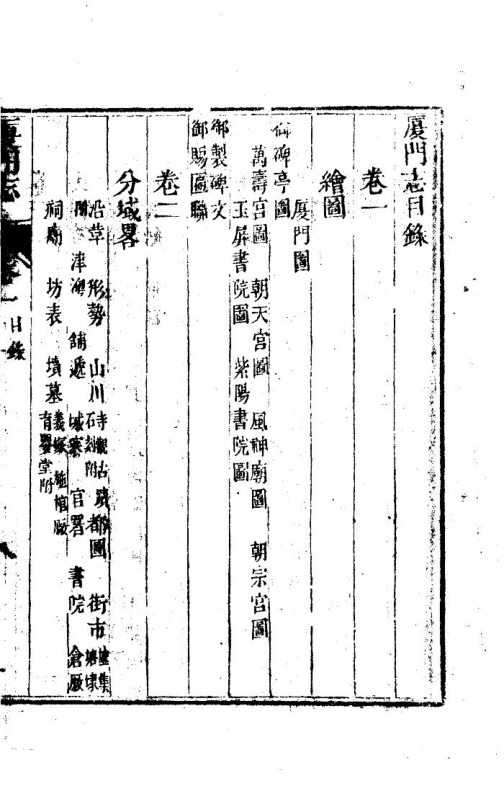 厦門志目錄
卷一
繪圖
厦門圖
御碑亭圖
萬壽宮圖 朝天宮圖 風神廟圖 朝宗宮圖
玉屏書院圖 紫陽書院圖
御製碑文
御賜匾聯
卷二
分域畧
沿革 形勢 山川 寺觀古石刻附 蹟 都圖 街市 墟集
津澳 舖遞 城寨 官署 書院 倉廒
祠廟 坊表 墳墓 義塚 施棺廠 育嬰堂附
厦門志 卷一 目錄